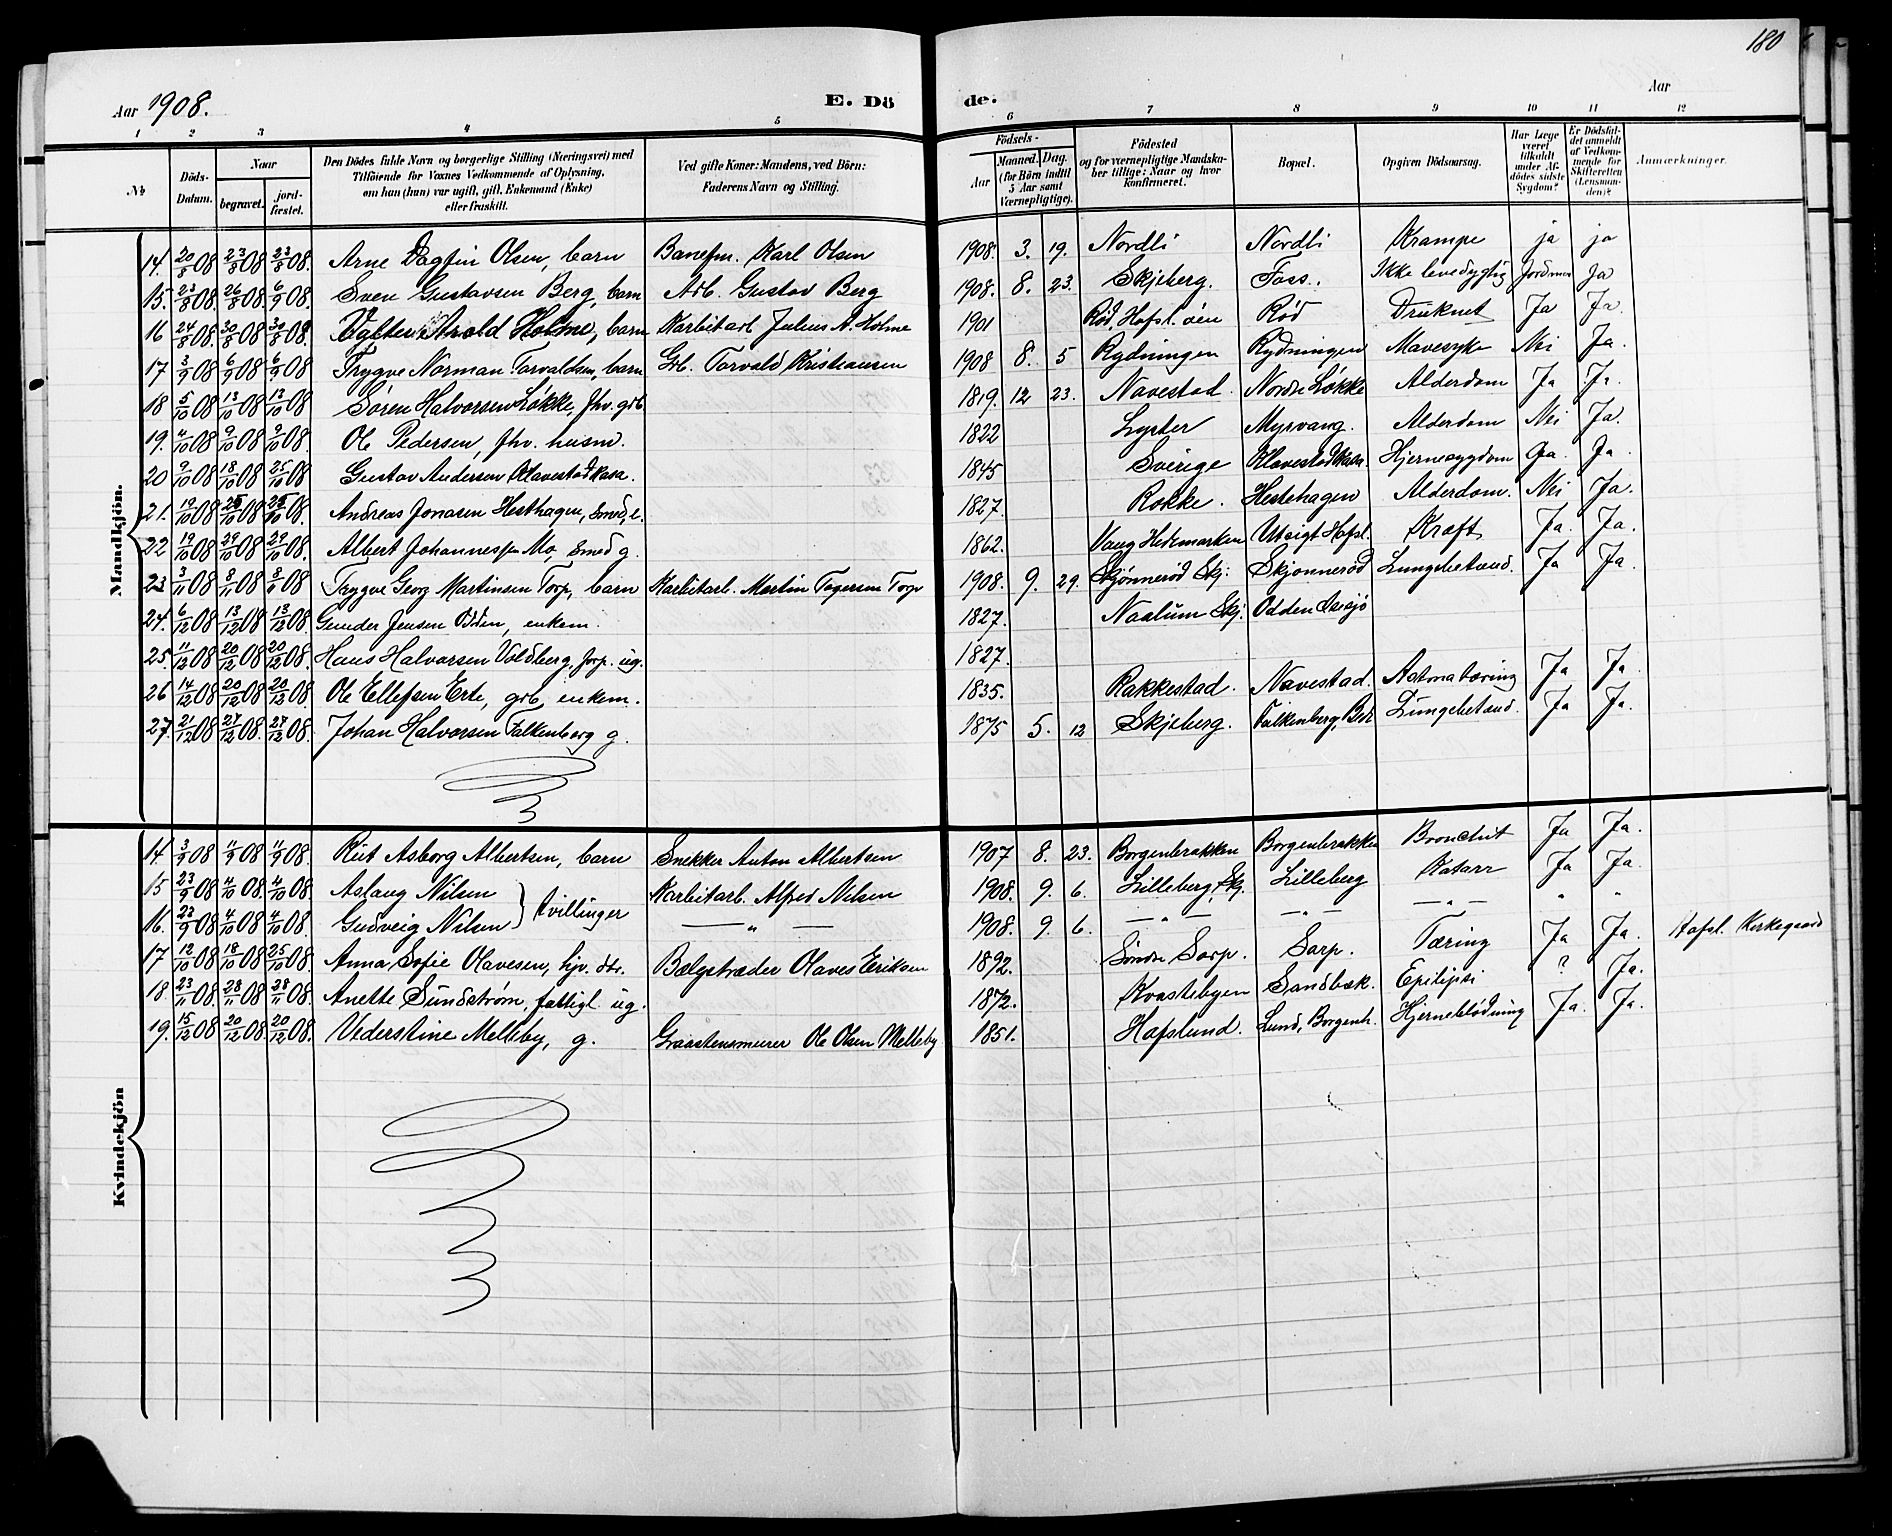 180
Aar 1908. E. Dö de. Aar
1 2 3 4 5 6 7 8 9 10 11 12
№ Döds-Datum. Naar begravet. jordfæstet. Den Dödes fulde Navn og borgerlige Stilling (Næringsvei) med Tilföiende for Voxnes Vedkommende af Oplysning, om han (hun) var ugift, gift, Enkemand (Enke) eller fraskilt. Ved gifte Koner: Mandens, ved Börn: Faderens Navn og Stilling. Födsels- Aar Maaned. Dag. (for Börn indtil 5 Aar samt Værnepligtige). Födested og for værnepligtige Mandskaber tillige: Naar og hvor konfirmeret. Bopæl. Opgiven Dödsaarsag. Har Læge været tilkaldt under Afdödes sidste Sygdom? Er Dödsfaldet anmeldt af Vedkommende for Skifteretten (Lensmanden)? Anmærkninger.
Mandkjön.
14. 20/8 08 23/8 08 23/8 08. Arne Dagfin Olsen, barn Banefm. Karl Olsen 1908. 3. 19. Nordli Nordli Krampe ja ja
15. 23/8 08. 26/8 08 6/9 08. Sven Gustavsen Berg, barn Arb. Gustav Berg 1908. 8. 23. Skjeberg. Foss. Ikke levedygtig Jordmor Ja
16 24/8 08. 30/8 08 30/8 08. Arold Holme, barn Karbitarb Julius A. Holme 1901 Rød, Hafsl. øen Rød Druknet Ja Ja.
17 3/9 08 6/9 08 6/9 08 Trygve Norman Torvaldsen, barn Grb. Torvald Kristiansen 1908 8. 5 Rydningen Rydningen Mavesyke Nei Ja.
18 5/10 08 13/10 08 13/10 08 Søren Halvorsen Løkke, fhv. grb 1819. 12 23. Navestad. Nordre Løkke Alderdom Ja Ja.
19. 4/10 08 9/10 08 9/10 08. Ole Pedersen, fhv. husm. 1822 Lyster Myrvang. Alderdom Nei Ja.
20 9/10 08 18/10 08 25/10 08 Gustav Andersen Klavestadkasa. 1845 Sverige Klavestadkasa. Hjernesygdom Ja. Ja.
21. 19/10 08 25/10 08 25/10 08. Andreas Jonasen Hesthagen, Smed, e. 1827. Rokke. Hestehagen Alderdom. Nei Ja.
22 19/10 08 29/10 08 29/10 08. Albert Johannessen Mo, Smed g. 1862. Vang Hedemarken Utsigt Hafsl. Kræft Ja. Ja.
23 3/11 08 8/11 08 8/11 08 Trygve Georg Martinsen Torp, barn Karbitarb. Martin Tegersen Torp 1908. 9. 29. Skjønnerød Skj: Skjonnerød Lungebetænd. Ja Ja.
24. 6/12 08 13/12 08 13/12 08. Gunder Jensen Odden, enkem. 1827. Naalum Skj. Odden Isesjø
25. 11/12 08 20/12 08 20/12 08. Hans Halvorsen Voldberg, forp. ug. 1827.
26 14/12 08 20/12 08 20/12 08. Ole Ellefsen Erte, grb. enkem. 1835. Rakkestad. Navestad. Astma tæring Ja Ja.
27. 21/12 08 27/12 08. 27/12 08. Johan Halvorsen Falkenberg g. 1875 5. 12 Skjeberg. Falkenberg, Lungebetænd. Ja Ja.
Kvindekjön
14 3/9 08 11/9 08 11/9 08. Rut Asborg Albertsen, barn Snekker Anton Albertsen 1907 8. 23. Borgenbrakken Borgenbrakken Bronchit Ja Ja.
15 23/9 08 4/10 08 4/10 08. Aslaug Nilsen } tvillinger Karbitarb. Alfred Nilsen 1908. 9. 6. Lilleberg, Skj. Lilleberg Katarr Ja Ja.
16. 23/9 08 4/10 08 4/10 08. Gudveig Nilsen — " — 1908. 9. 6. — " — — " — — " — " "
17 12/10 08 18/10 08 25/10 08. Anna Sofie Olavesen, hjv. dtr. Bælgetræder Olaves Eriksen 1892. Søndre Sarp. Sarp. Tæring Ja Ja. Hafsl. Kirkegaard
18. 23/11 08. 28/11 08 28/11 08. Anette Sundstrøm, fattigl. ug. 1872. Kvastebyen Sandbæk. Epilepsi ? Ja.
19. 15/12 08 20/12 08. 20/12 08. Vederstine Melleby, g. Graastensmurer Ole Olsen Melleby 1851. Hafslund. Lund, Borgenh. Hjerneblødning Ja. Ja.